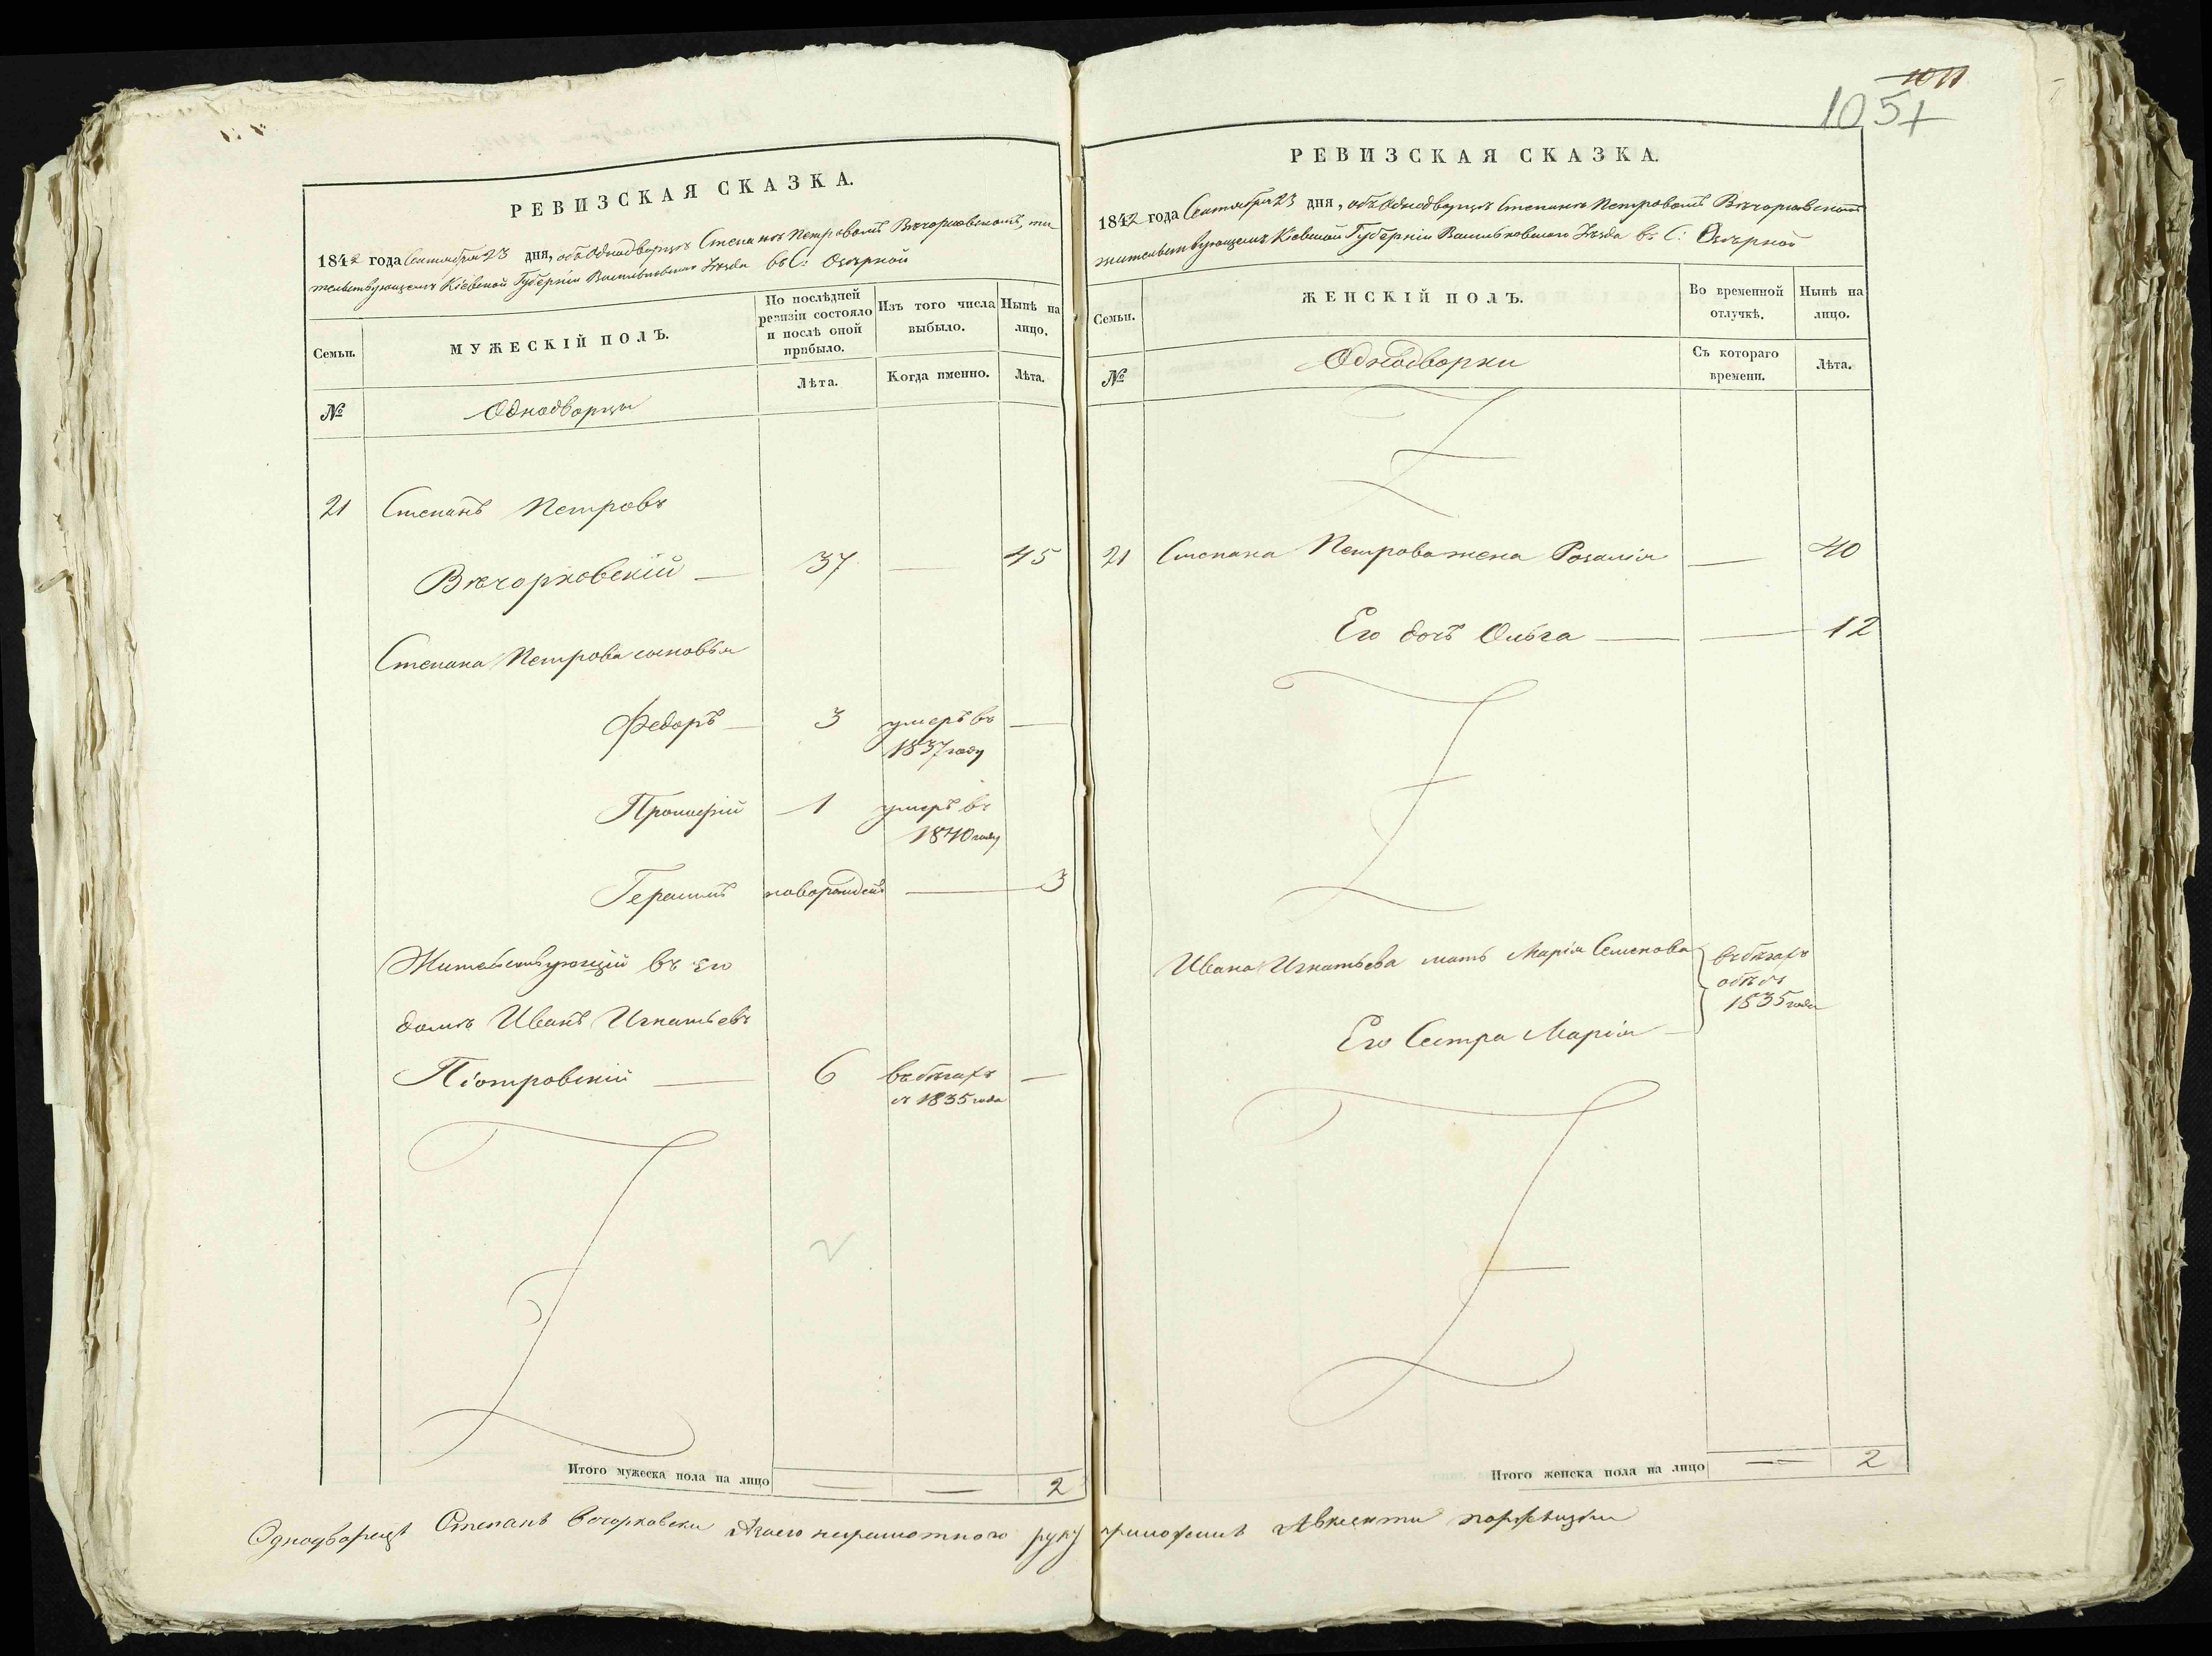 РЕВИЗСКАЯ СКАЗКА.
1842 года Сентября 23 дня, объ Однодворцѣ Степанѣ Петровомъ Вѣчорковскомъ, жи
тельствующемъ Кіевской Губерніи Васильковскаго Уѣзда въ С: Озѣрной
Семьи.
МУЖЕСКІЙ ПОЛЪ.
По послѣдней
ревизіи состояло
и послѣ оной
прибыло.
Изъ того числа
выбыло.
Нынѣ на
лицо.
№
Однодворцы
Лѣта.
Когда именно.
Лѣта.
21 Степанъ Петровъ
Вѣчорковскій — 37 — 45
Степана Петрова сыновья
Федоръ — 3 умеръ въ —
1837 году
Прокофій 1 умеръ въ
1840 году
Герасимъ новорожден — 3
Жительствующій въ его
домѣ Иванъ Игнатьевъ
Піотровскій — 6 въ бѣгахъ —
съ 1835 года
Итого мужеска пола на лицо — — 2
1011
1051
РЕВИЗСКАЯ СКАЗКА.
1842 года Сентября 23 дня, объ Однодворцѣ Степанѣ Петровомъ Вѣчорковскомъ
жительствующемъ Кіевской Губерніи Васильковскаго Уѣзда въ С: Озѣрной
Семьи.
ЖЕНСКІЙ ПОЛЪ.
Во временной
отлучкѣ.
Нынѣ на
лицо.
№
Однодворки
Съ котораго
времени.
Лѣта.
21 Степана Петрова жена Розалія — 40
Его дочь Ольга — — 12
Ивана Игнатьева мать Марія Семенова въ бѣгахъ
обѣ съ
1835 года
Его Сестра Марія —
Итого женска пола на лицо — 2
Однодворецъ Степанъ Вечорковски неграмотного руку приложилъ